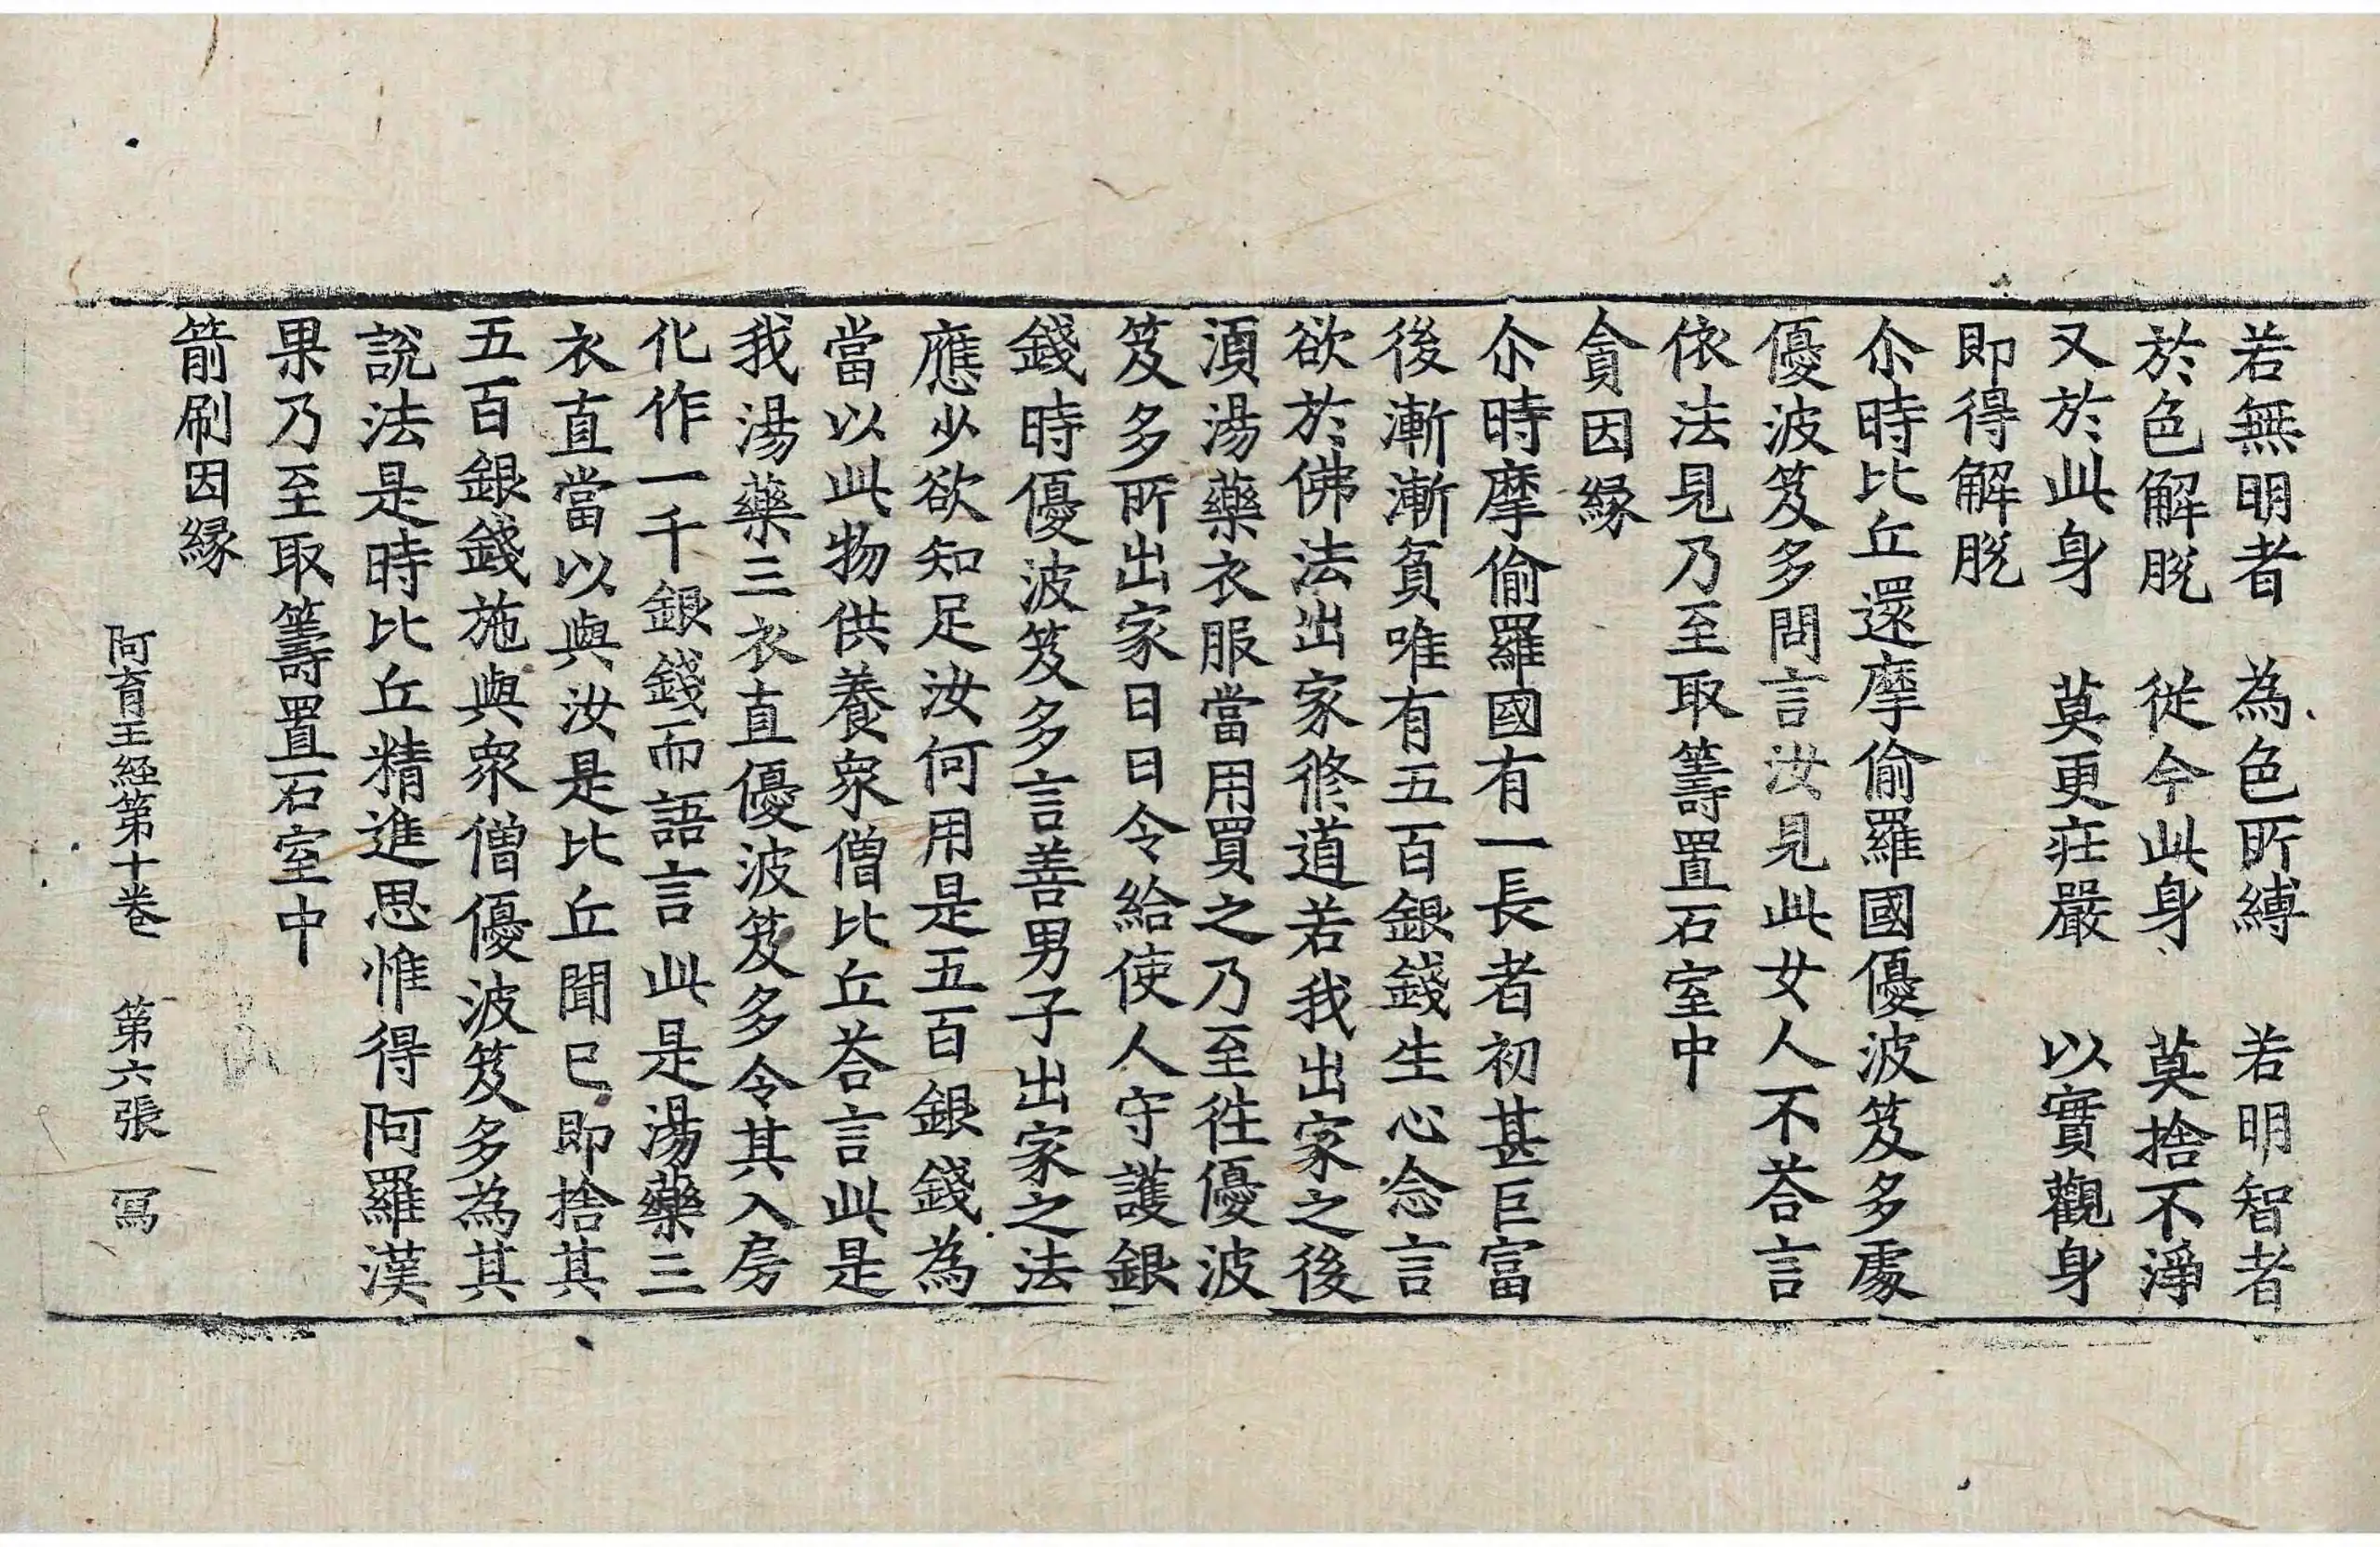 若無明者　為色所縛　若明智者
於色解脫　從今此身　莫捨不淨
又於此身　莫更莊嚴　以實觀身
即得解脫
尒時比丘還摩偷羅國優波笈多處
優波笈多問言汝見此女人不荅言
依法見乃至取籌置石室中
貪因緣
尒時摩偷羅國有一長者初甚巨富
後漸漸貧唯有五百銀錢生心念言
欲於佛法出家修道若我出家之後
湏湯藥衣服當用買之乃至往優波
笈多所出家日日令給使人守護銀
錢時優波笈多言善男子出家之法
應少欲知足汝何用是五百銀錢為
當以此物供養眾僧比丘荅言此是
我湯藥三衣直優波笈多令其入房
化作一千銀錢而語言此是湯藥三
衣直當以與汝是比丘聞已即捨其
五百銀錢施與眾僧優波笈多為其
說法是時比丘精進思惟得阿羅漢
果乃至取籌置石室中
箭刷因緣
阿育王経第十卷　第六張　冩